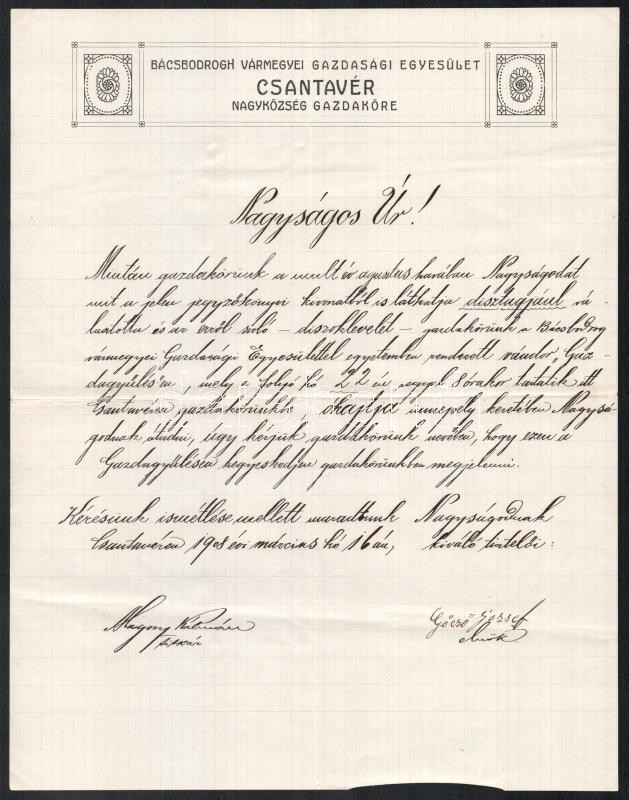 BÁCSBODROGH VÁRMEGYEI GAZDASÁGI EGYESÜLET
CSANTAVÉR
NAGYKÖZSÉG GAZDAKÖRE
Nagyságos Úr!
Miután gazdakörünk a mult év agustus havában Nagyságodat
mit a jelen jegyzőkönyvi kivonatból is láthatja disztagjául vá-
lasztotta és az erről szóló – diszoklevelét – gazdakörünk a Bácsbodrog
vármegyei Gazdasági Egyesülettel egyetemben rendezett vándor „Gaz-
dagyülés"én, mely e folyó hó 22 én reggel 8 órakor tartatik itt
Csantavéren gazdakörünkbe, óhajtja ünnepély keretében Nagysá-
godnak átadni, úgy kérjük gazdakörünk nevében, hogy ezen a
Gazdagyülésen kegyeskedjen gazdakörünkben megjelenni.
Kérésünk ismétlése mellett maradtunk Nagyságodnak
Csantavéren 1908 évi március hó 16 án, kiváló tisztelői:
Kálmán Gőcző József
titkár elnök